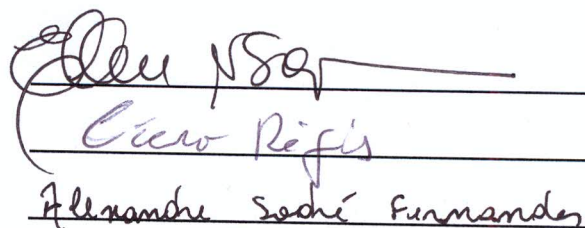 Ellen
Cícero Régis
Alexandre Sodré Fernandes